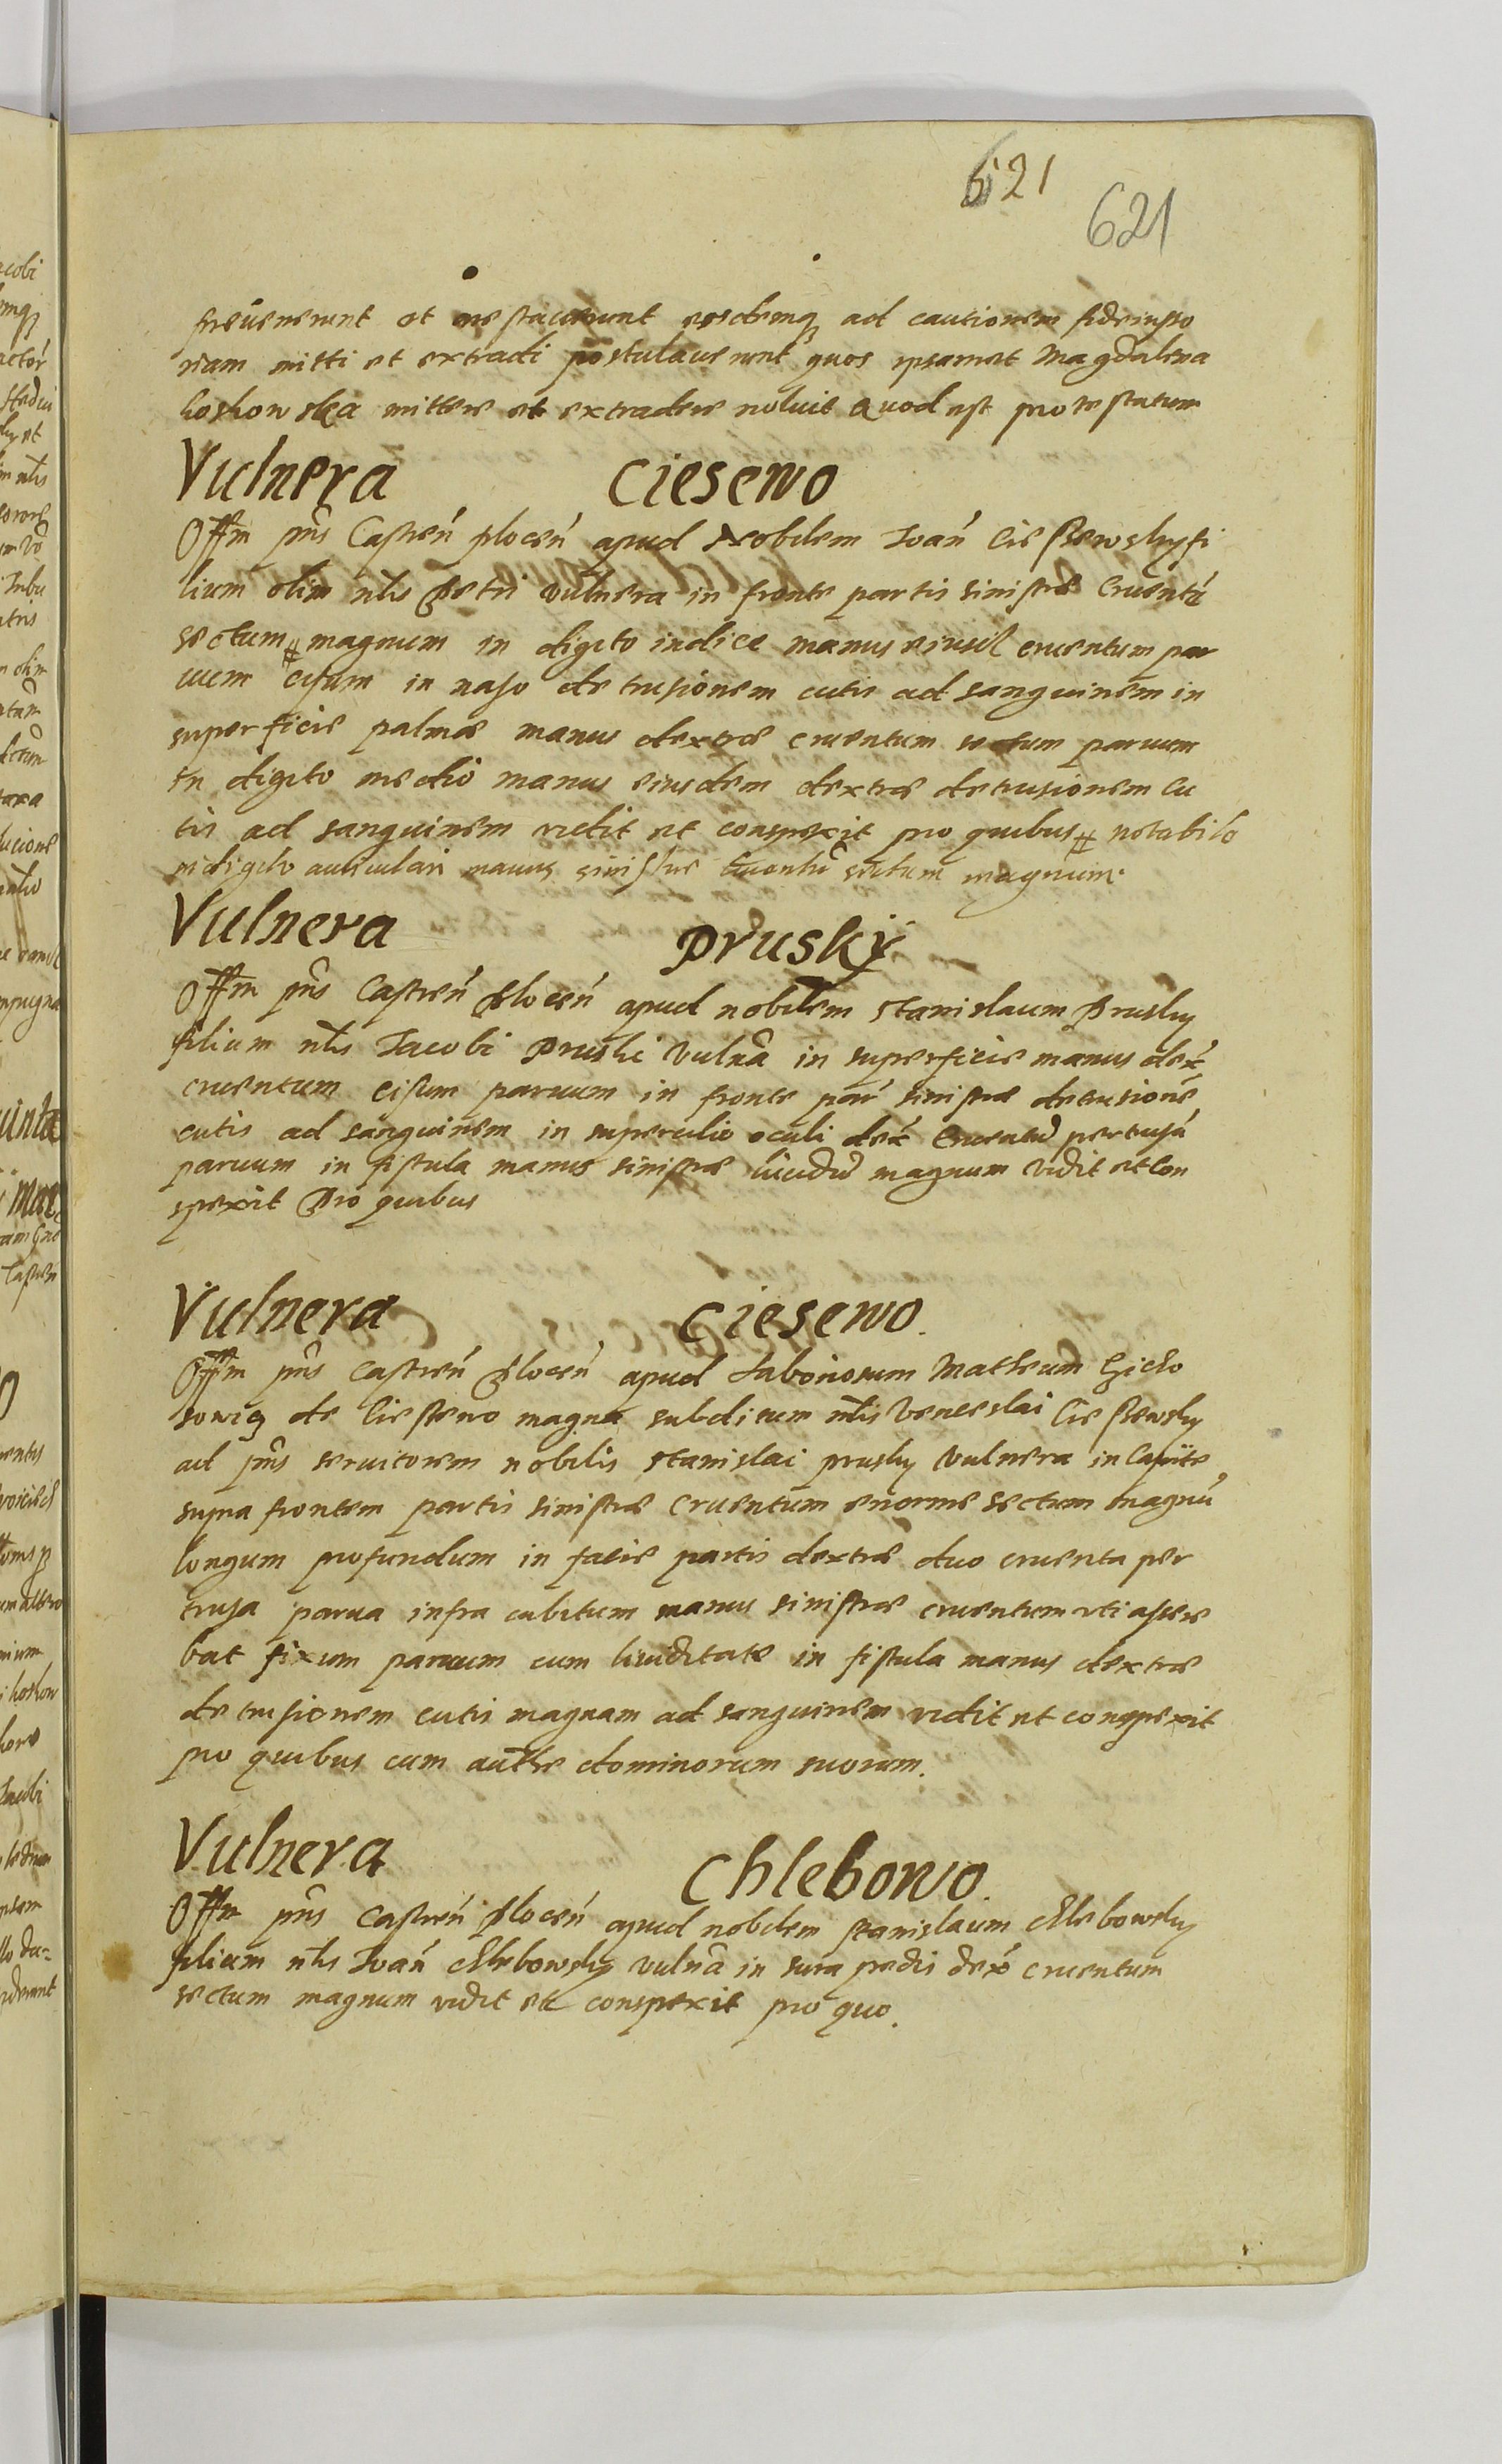 621
621
et eosdemq ad cautionem fideiusso
riam mitti et extradi postulaverunt quos ipsamet Magdalena
koskowska mittere et extradere noluit Quod est protestatum
Vulnera Ciesewo
Offm pns Castren plocen apud Nobilem Joan Ciessewsky fi
lium olim nlis Petri vulnera in fronte partis sinistræ Cruentu
sectum # magnum in digito indice manus eiusd cruentum par
uum cisum in naso detrusionem cutis ad sanguinem in
superficie palmæ manus dextræ cruentum sectum paruum
in digito medio manus eiusdem dextræ detrusionem cu
tis ad sanguinem vidit et conspexit pro quibus # notabilo
in digito auriculari manus sinistræ cruentu sectum magnum.
Vulnera Prusky
Offm pns Castren Plocen apud nobilem Stanislaum Prusky
filium nlis Jacobi Pruski vulna in superficie manus dex
cruentum cisum paruum in fronte par sinistræ detrusione
cutis ad sanguinem in supercilio oculi dex Cruentu pertusu
paruum in fistula manus sinistræ liuidu magnum vidit et con
spexit Pro quibus
Vulnera Ciesewo.
Offm pns Castren Plocen apud Laboriosum Matheum
de Ciessewo magna subditum nlis Venceslai Ciessewsky
ad pns seruitorem nobilis Stanislai prusky vulnera in Capite
supra frontem partis sinistræ Cruentum enorme sectum magnu
longum profundum in facie partis dextræ duo cruenta per
trusa parua infra cubitum manus sinistræ cruentum uti assere
bat fixum paruum cum liuiditate in fistula manus dextræ
detrusionem cutis magnam ad sanguinem vidit et conspexit
pro quibus cum authe dominorum suorum.
Vulnera Chlebowo.
Offm pns Castren Plocen apud nobilem Stanislaum Chlebowsky
filium nlis Joan Chlebowsky vulna in sura pedis dex cruentum
sectum magnum vidit et conspexit pro quo.